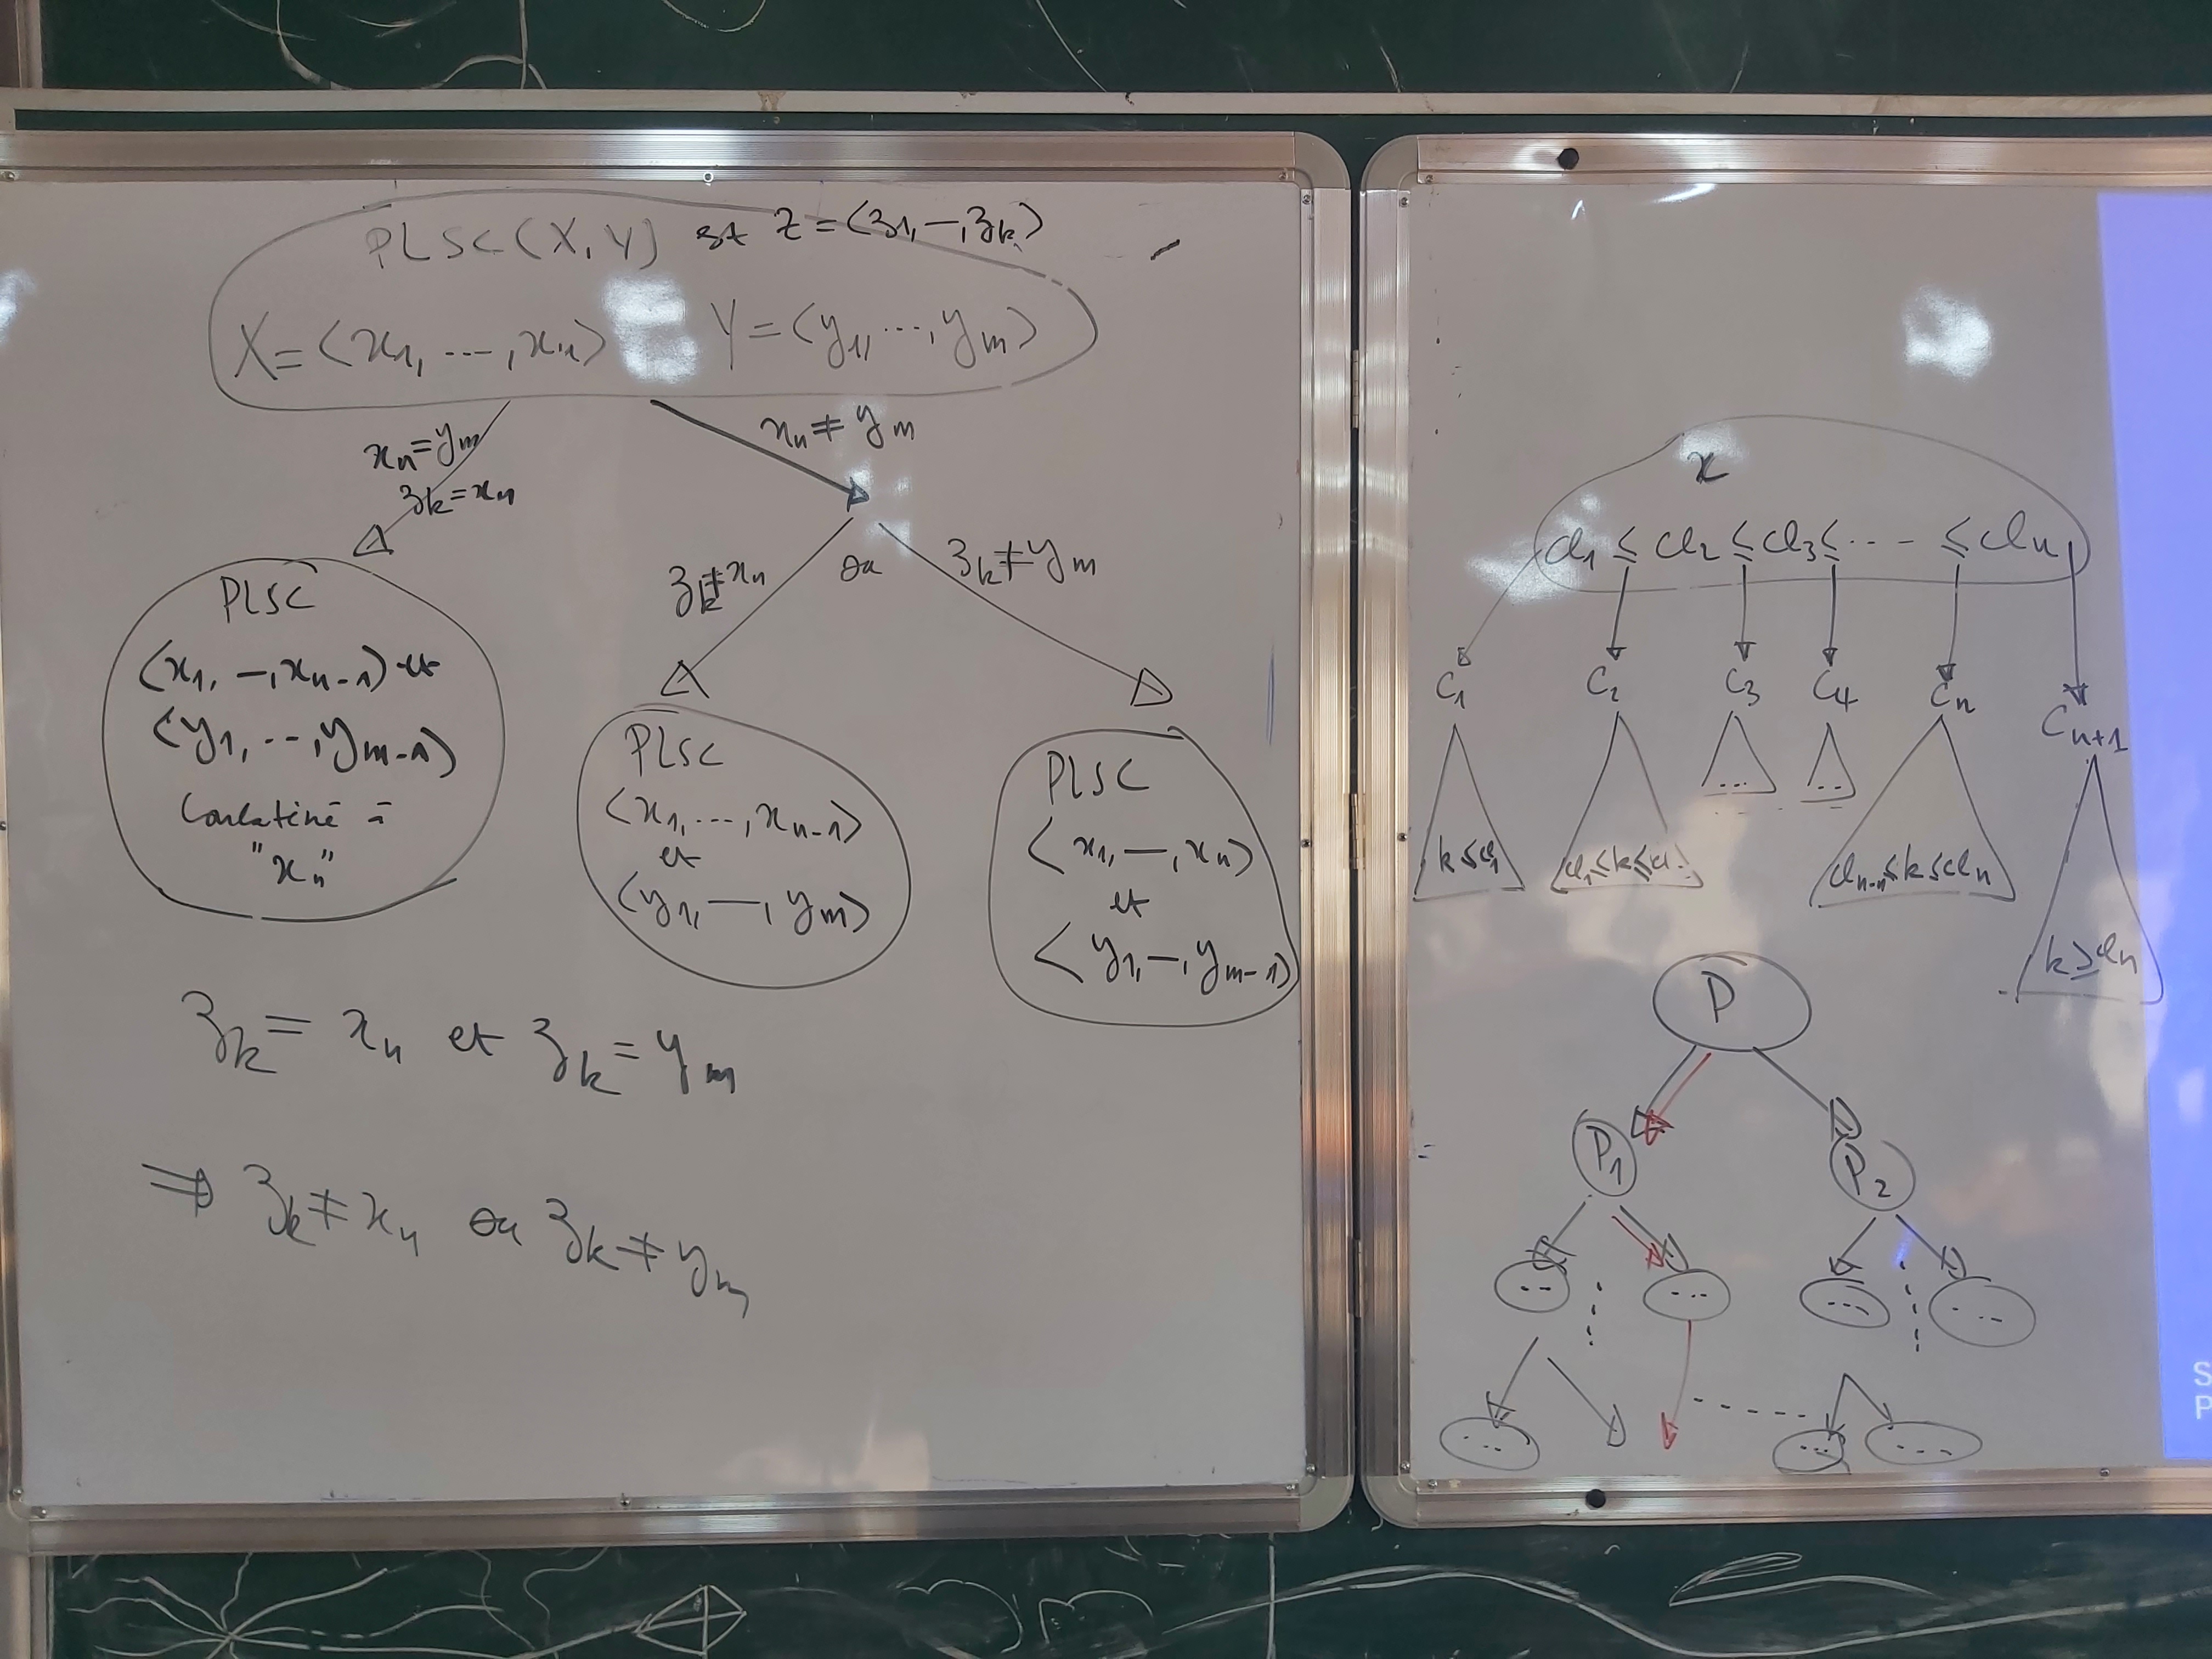 PLSC(X,Y) est Z=⟨z1,—,zk⟩
X=⟨x1,---,xn⟩ Y=⟨y1,---,ym⟩
xn=ym
zk=xn
xn≠ym
zk≠xn ou zk≠ym
PLSC
⟨x1,—,xn-1⟩ et
⟨y1,--,ym-1⟩
concaténé à
"xn"
PLSC
⟨x1,...,xn-1⟩
et
⟨y1,—,ym⟩
PLSC
⟨x1,—,xn⟩
et
⟨y1,—,ym-1⟩
zk=xn et zk=ym
⇒ zk≠xn ou zk≠ym
x
cl1 ≤ cl2 ≤ cl3 ≤ --- ≤ cln
C1 C2 C3 C4 Cn Cn+1
k≤cl1 cl1≤k≤cl ... .. cln-1≤k≤cln
k≥cln
P
P1 P2
-- --- --- ---
--- --- ----
S
P